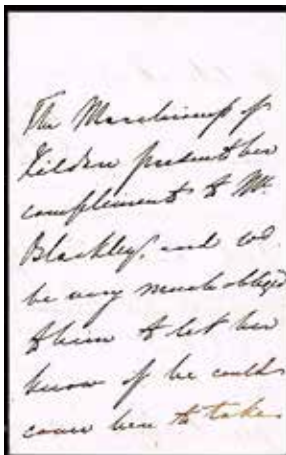 The Marchioness of
Kildare presents her
compliments to Mr.
Blackley, and wd.
be very much obliged
to him to let her
know if he could
come here to take